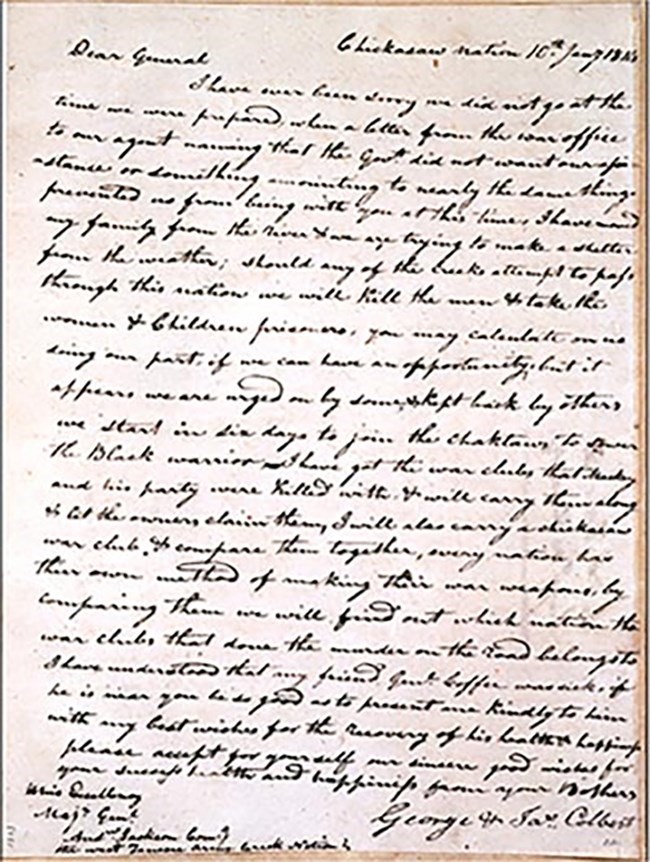 Chickasaw Nation 10th Jany 1814
Dear General
I have ever been sorry we did not go at the
time we were prepared when a letter from the war office
to our agent naming that the Govt did not want our
or something amounting to nearly the same thing
prevented us from being with you at this time, I have
my family from the river & we are trying to make a shelter
from the weather; should any of the creeks attempt to pass
through this nation we will kill the men & take the
women & Children prisoners, you may calculate on us
doing our part, if we can have an opportunity, but it
appears we are urged on by some & kept back by others
we start in six days to join the Chaktaws to
the Black warrior I have got the war clubs that
and his party were killed with & will carry them along
& let the owners claim them, I will also carry a chickasaw
war club, & compare them together, every nation has
their own method of making their war weapons, by
comparing them we will find out which nation the
war clubs that done the murder on the road belongs to
I have understood that my friend Genl Coffee was sick, if
he is near you be so good as to present me kindly to him
with my best wishes for the recovery of his health & happiness
please accept for yourself our sincere good wishes for
your success health and happiness from your Brothers
George & Jas Colbert
His Excellency
Majr Genl
Andw Jackson Comg
the west Army Creek Nation